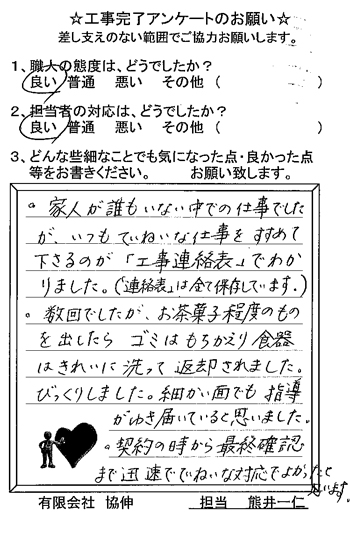 ☆工事完了アンケートのお願い☆
差し支えのない範囲でご協力お願いします。
1、職人の態度は、どうでしたか?
良い 普通 悪い その他 ( )
2、担当者の対応は、どうでしたか?
良い 普通 悪い その他 ( )
3、どんな些細なことでも気になった点・良かった点
等をお書きください。 お願い致します。
。家人が誰もいない中での仕事でした
が、いつもていねいな仕事をすすめて
下さるのが「工事連絡表」でわか
りました。(「連絡表」は全て保存しています。)
。数回でしたが、お茶菓子程度のもの
を出したら ゴミはもちかえり 食器
はきれいに洗って返却されました。
びっくりしました。細かい面でも指導
がゆき届いていると思いました。
。契約の時から最終確認
まで迅速でていねいな対応でよかったと
思います。
有限会社 協伸 担当 熊井一仁